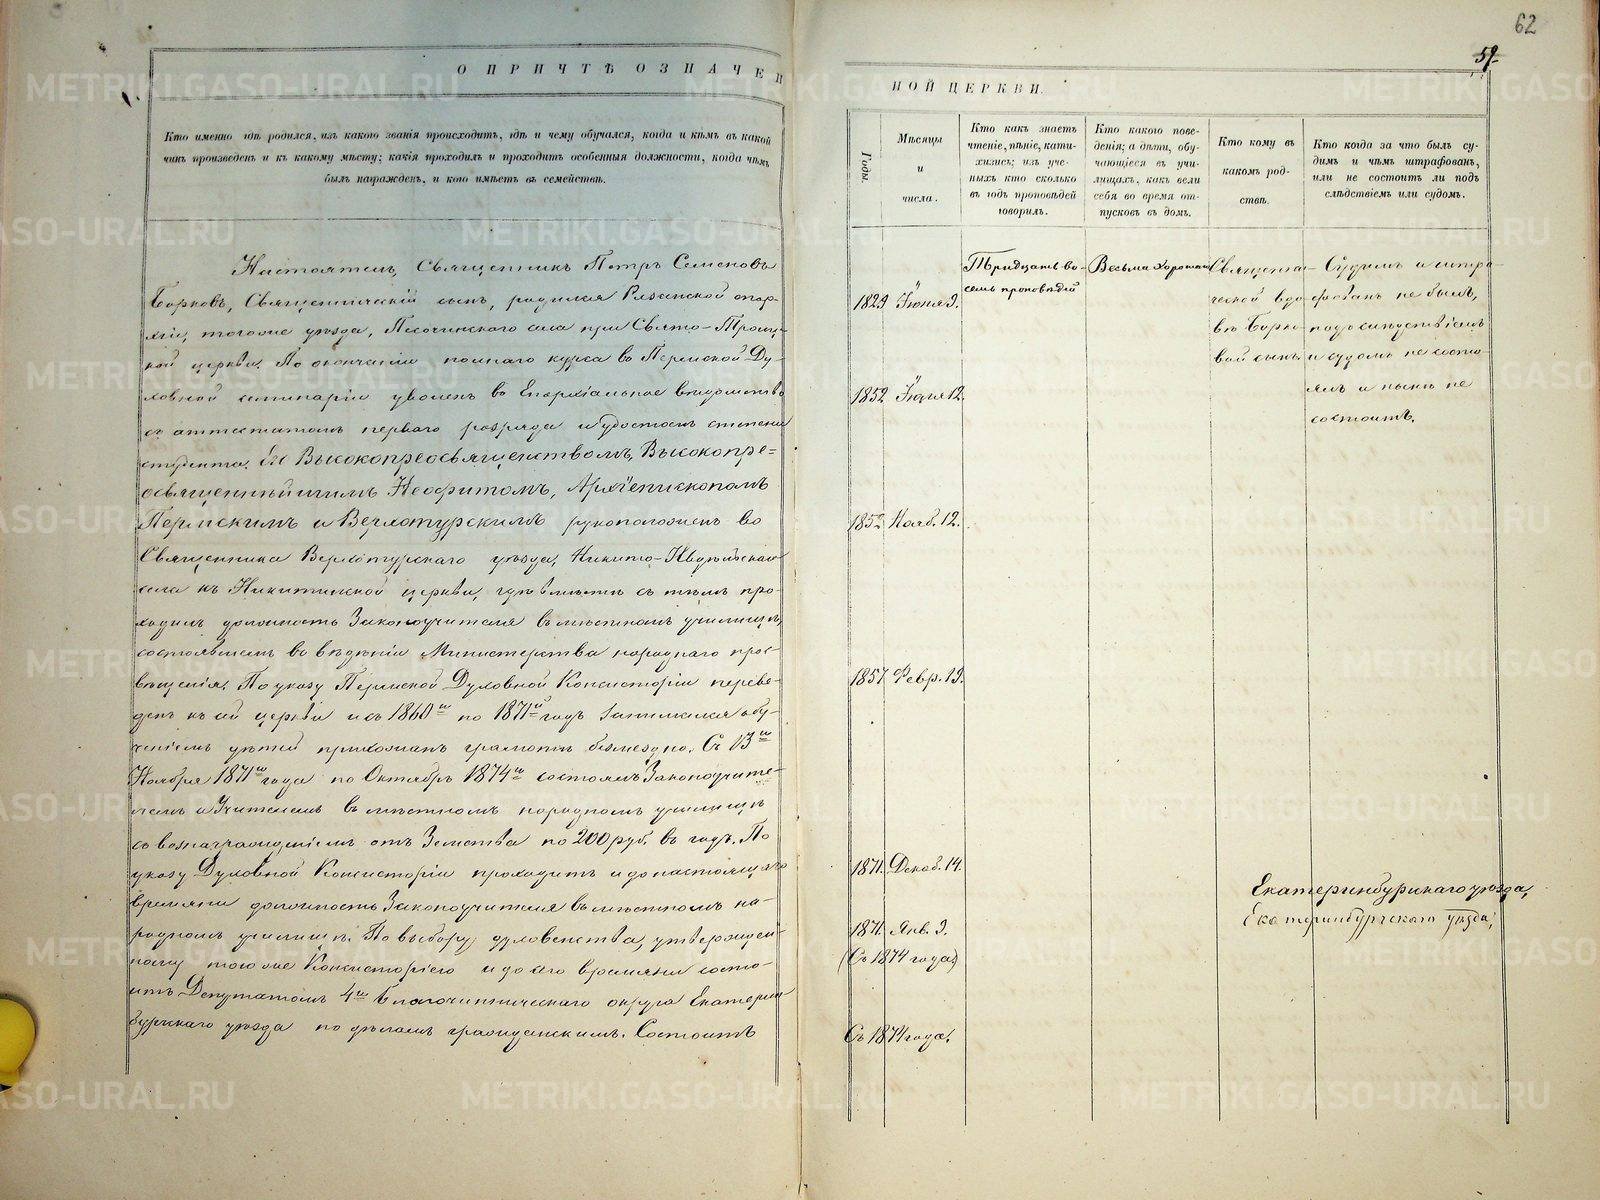 62
59
О ПРИЧТѢ ОЗНАЧЕН
НОЙ ЦЕРКВИ.
Кто именно гдѣ родился, изъ какого званія происходитъ, гдѣ и чему обучался, когда и кѣмъ въ какой
чинъ произведенъ и къ какому мѣсту; какія проходилъ и проходитъ особенныя должности, когда чѣмъ
былъ награжденъ, и кого имѣетъ въ семействѣ.
Настоятель, Священникъ Петръ Семеновъ
Борковъ, Священническій сынъ, родился Рязанской епар-
хіи, тогоже уѣзда, Песочинскаго села при Свято-Троиц-
кой церкви. По окончаніи полнаго курса въ Пермской Ду-
ховной семинаріи уволенъ въ Епархіальное вѣдомство
съ аттестатомъ перваго разряда и удостоенъ степени
студента. Его Высокопреосвященствомъ, Высокопре=
освященнѣйшимъ Неофитомъ, Архіепископомъ
Пермскимъ и Верхотурскимъ рукоположенъ во
Священника Верхотурскаго уѣзда, Никито-Ивдельскаго
села къ Никитинской церкви, гдѣ вмѣстѣ съ тѣмъ про-
ходилъ должность Законоучителя въ мѣстномъ училищѣ,
состоявшемъ въ вѣдѣніи Министерства народнаго прос-
вѣщенія. По указу Пермской Духовной Консисторіи переве-
денъ къ сей церкви и съ 1860го по 1871й годъ занимался обу-
ченіемъ дѣтей прихожанъ грамотѣ безмездно. Съ 13го
Ноября 1871го года по Октябрь 1874го состоялъ Законоучите-
лемъ и Учителемъ въ мѣстномъ народномъ училищѣ
съ вознагражденіемъ отъ Земства по 200 руб. въ годъ. По
указу Духовной Консисторіи проходитъ и до настоящаго
времяни должность Законоучителя въ мѣстномъ на-
родномъ училищѣ. По выбору духовенства, утвержден-
ному тоюже Консисторіею и до сего времяни состо-
итъ Депутатомъ 4го Благочинническаго округа Екатерин-
бургскаго уѣзда по дѣламъ гражданскимъ. Состоитъ
Годы.
Мѣсяцы
и
числа.
1829 Іюня 9.
1852 Іюля 12.
1852 Нояб. 12.
1857 Февр. 19.
1871. Декаб. 14.
1871. Янв. 9.
(Съ 1874 года)
Съ 1874 года.
Кто какъ знаетъ
чтеніе, пѣніе, кати-
хизисъ; изъ уче-
ныхъ кто сколько
въ годъ проповѣдей
говорилъ.
Тридцать во-
семь проповѣдей
Кто какого пове-
денія; а дѣти, обу-
чающіеся въ учи-
лищахъ, какъ вели
себя во время от-
пусковъ въ домъ.
Весьма хорошаго
Кто кому въ
какомъ род-
ствѣ.
Священни-
ческой вдо
вѣ Борко-
вой сынъ.
Кто когда за что былъ су-
димъ и чѣмъ штрафованъ,
или не состоитъ ли подъ
слѣдствіемъ или судомъ.
Судимъ и штра-
фованъ не былъ,
подъ слѣдствіемъ
и судомъ не состо-
ялъ и нынѣ не
состоитъ.
Екатеринбургскаго уѣзда,
Екатеринбургскаго уѣзда,